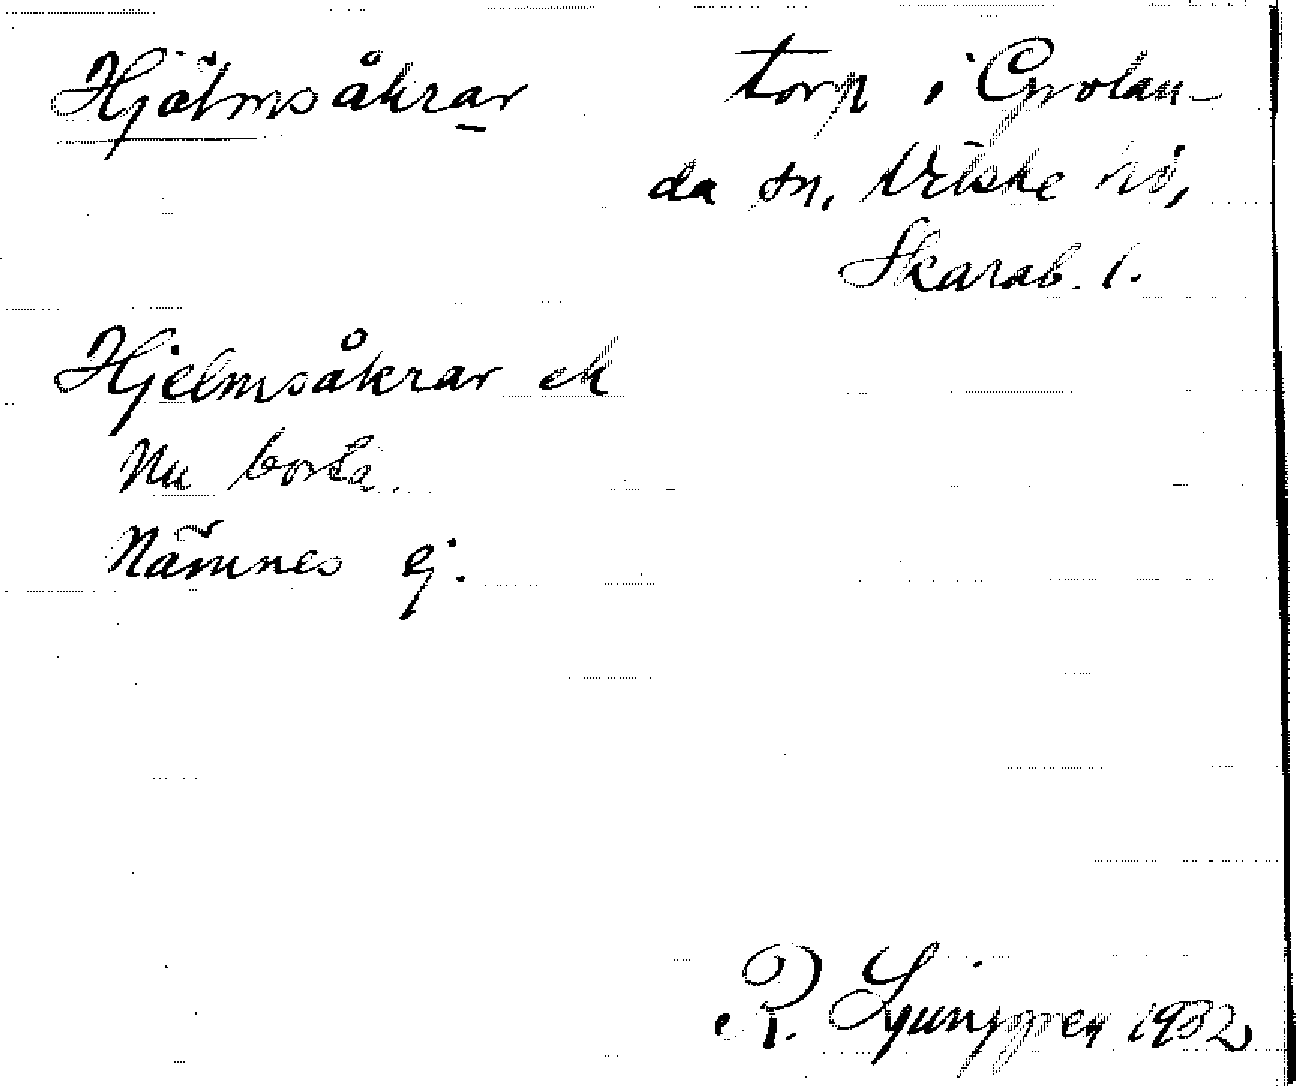 Hjälmsåkrar torp i Grolan-
da sn, Vilske hd,
Skarab. l.
Hjelmsåkrar ek
Nu borta.
Nämnes ej.
R. Ljunggren 1932